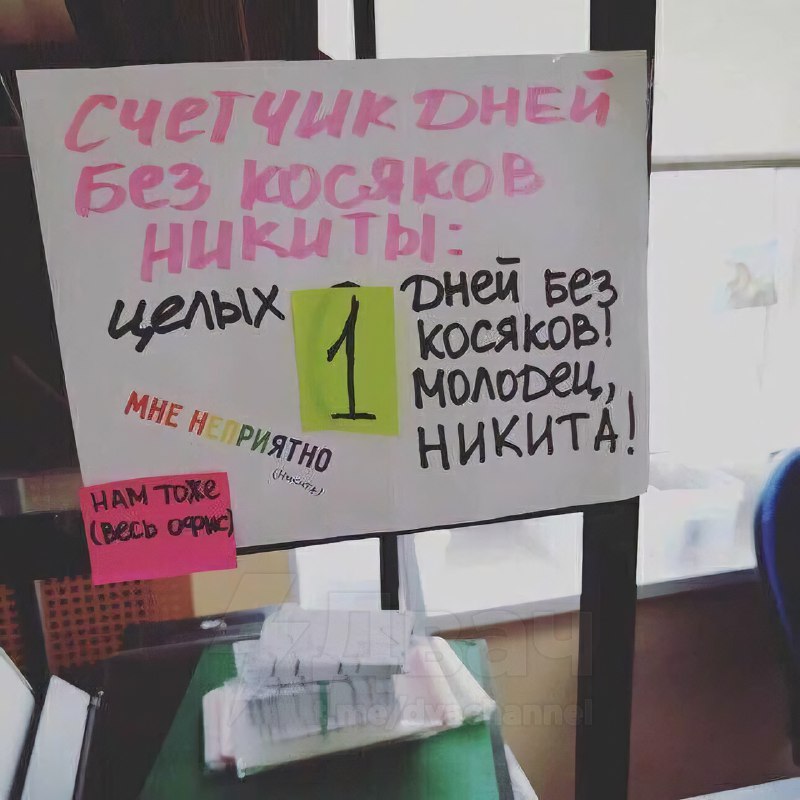 СЧЕТЧИК ДНЕЙ
БЕЗ КОСЯКОВ
НИКИТЫ:
ЦЕЛЫХ
1
ДНЕЙ БЕЗ
КОСЯКОВ!
МОЛОДЕЦ,
НИКИТА!
МНЕ НЕПРИЯТНО
(НИКИТА)
НАМ ТОЖЕ
(ВЕСЬ ОФИС)
Двач
t.me/dvachannel